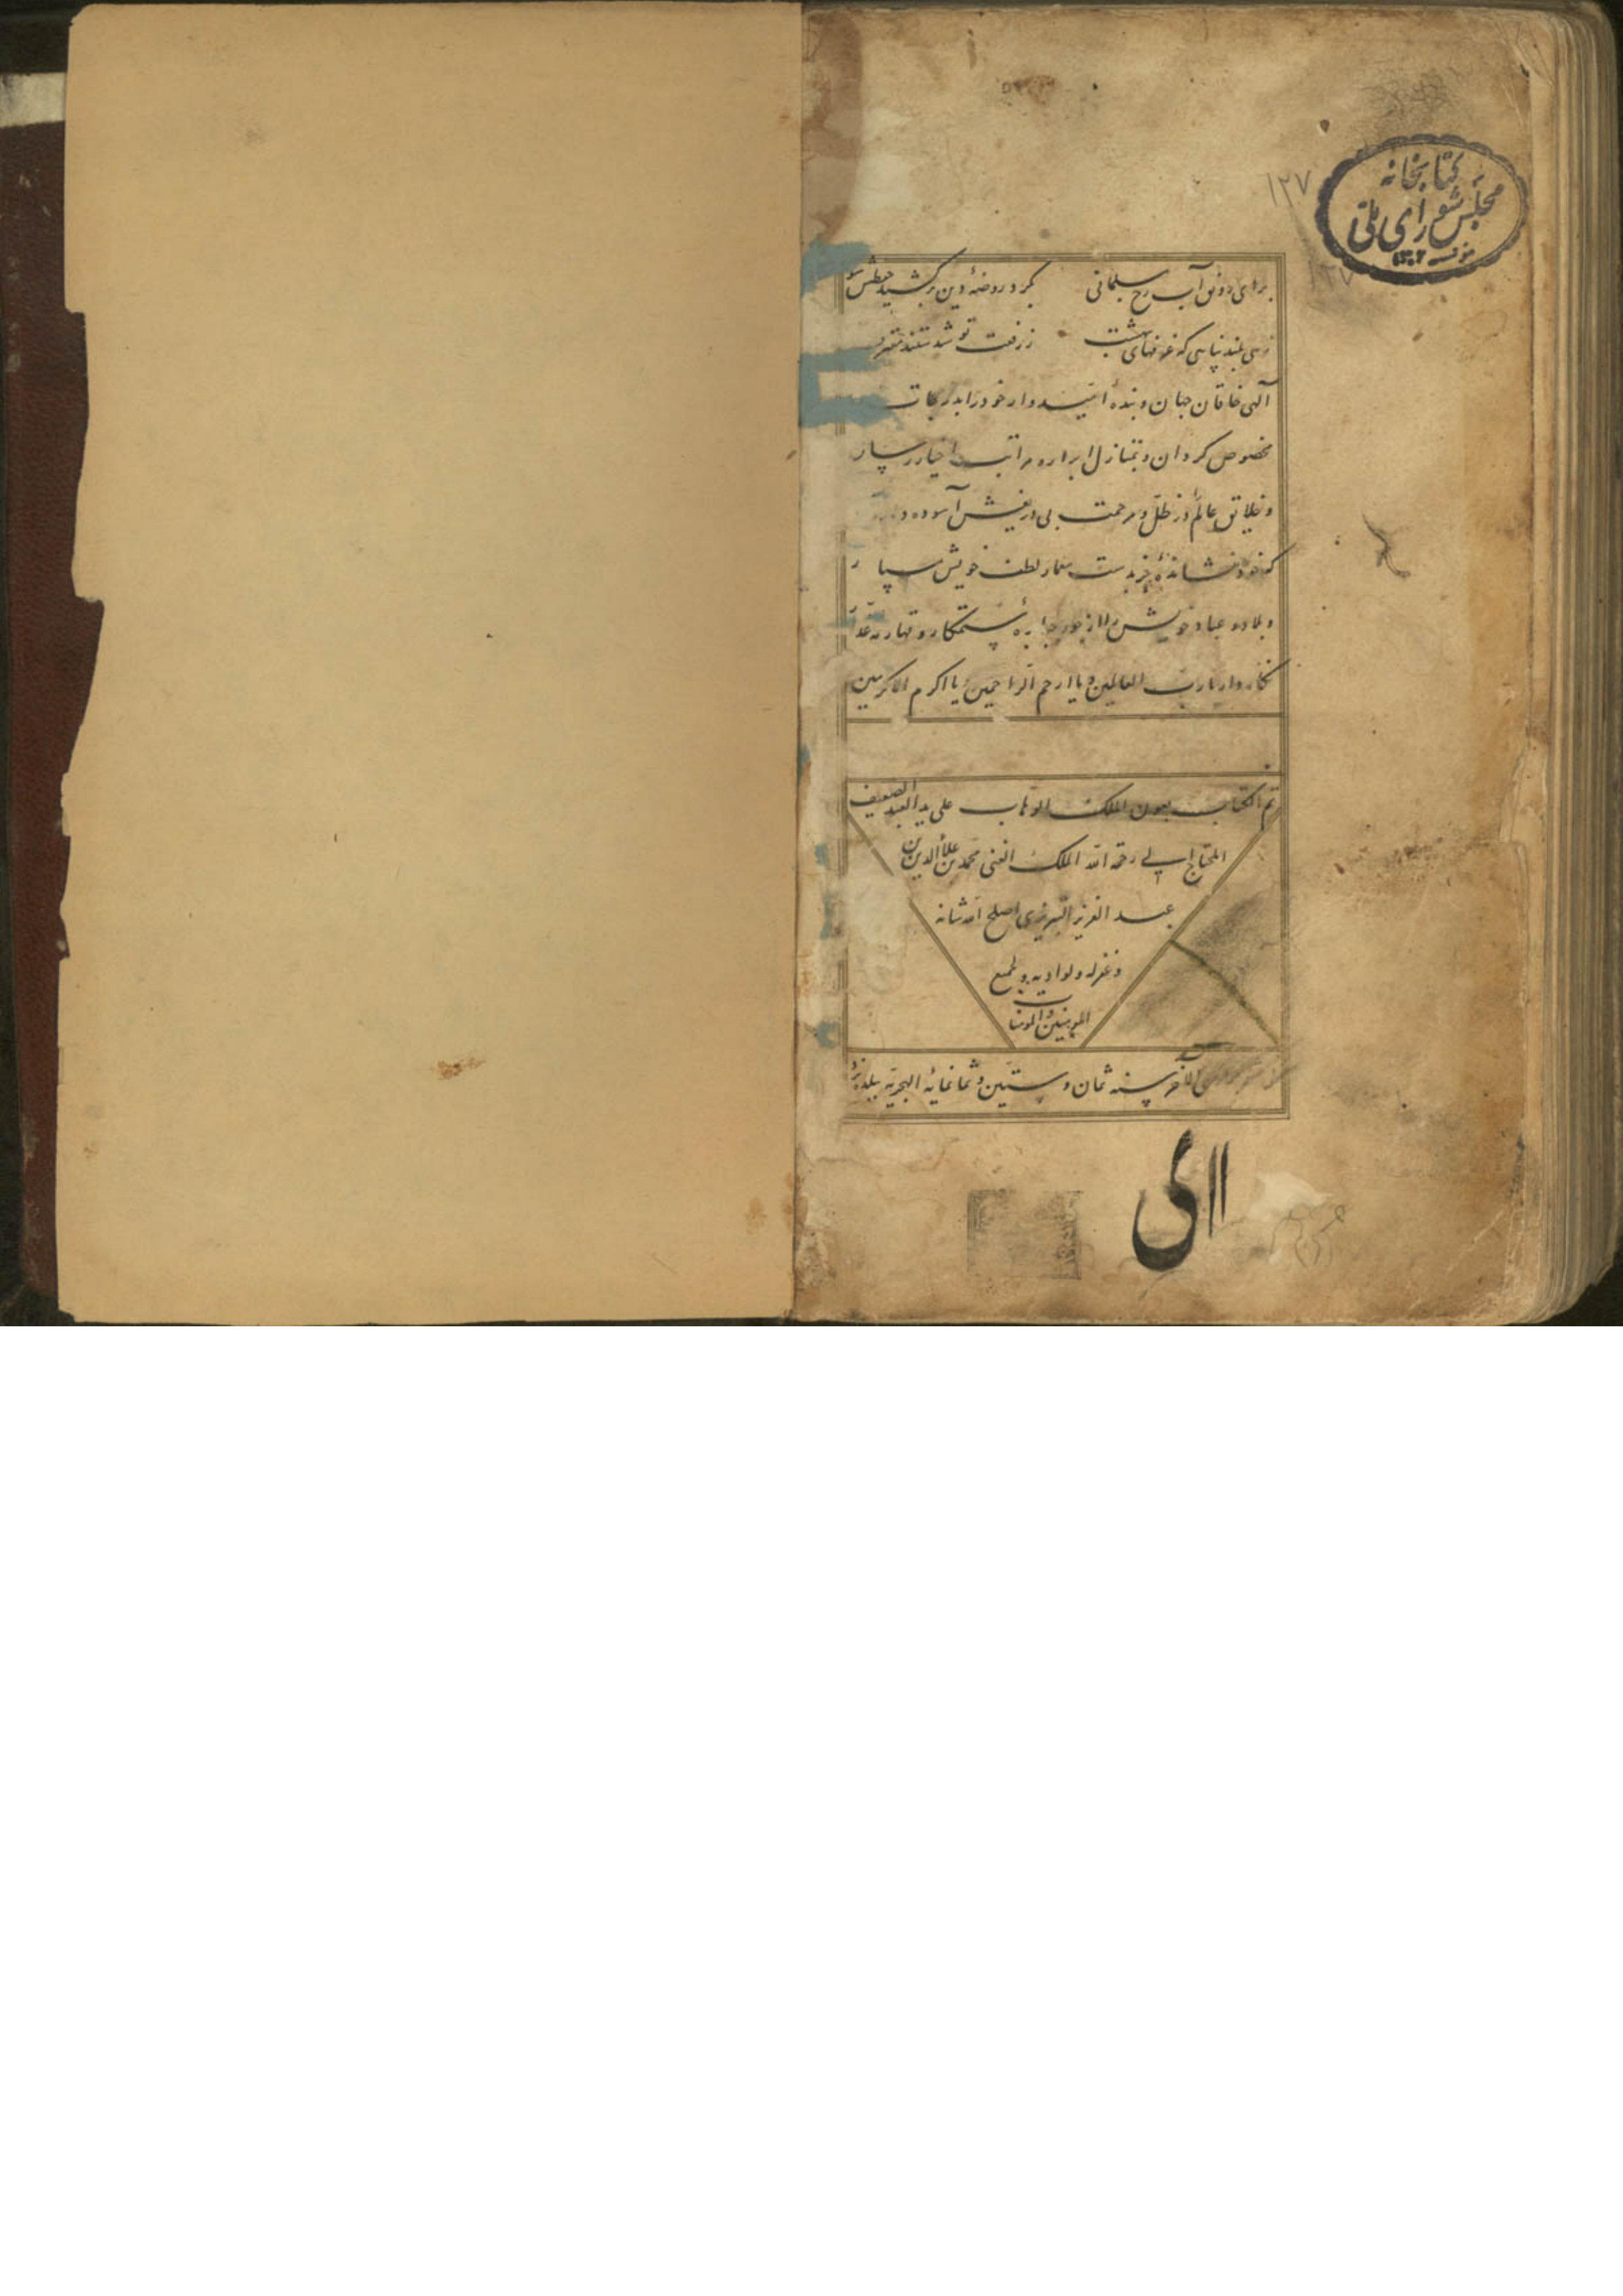 کتابخانه
مجلس شورای ملی
مؤسسه ۱۳۰۲
۱۲۷
۱۲۷
برای رونق آب رخ مسلمانی بگرد روضهٔ دین برکشید
بلند بنایی که غرفهای بهشت ز رفعت تو شدستند
الهی خاقان جهان و بنده امیدوار خود را بدرجات
مخصوص کردان و بمنازل ابرار و مراتب اخیار رسان
و خلایق عالم در ظل و مرحمت بی دریغش آسوده
که خود نشاندهٔ بدست معمار لطف خویش سپار
و بلاد و عباد خویش را از جور جبابرهٔ ستمکار و قهارمهٔ
نکاه دار یا رب العالمین و یا ارحم الراحمین یا اکرم الاکرمین
تم الکتاب بعون الملک الوهاب علی ید العبد الضعیف
المحتاج الی رحمة الله الملک الغنی محمد بن علاء الدین بن
عبد العزیز التبریزی اصلح الله شانه
و غفر له ولوالدیه ولجمیع
المومنین والمومنات
الآخر سنه ثمان و ستین و ثمانمایه الهجریه ببلده